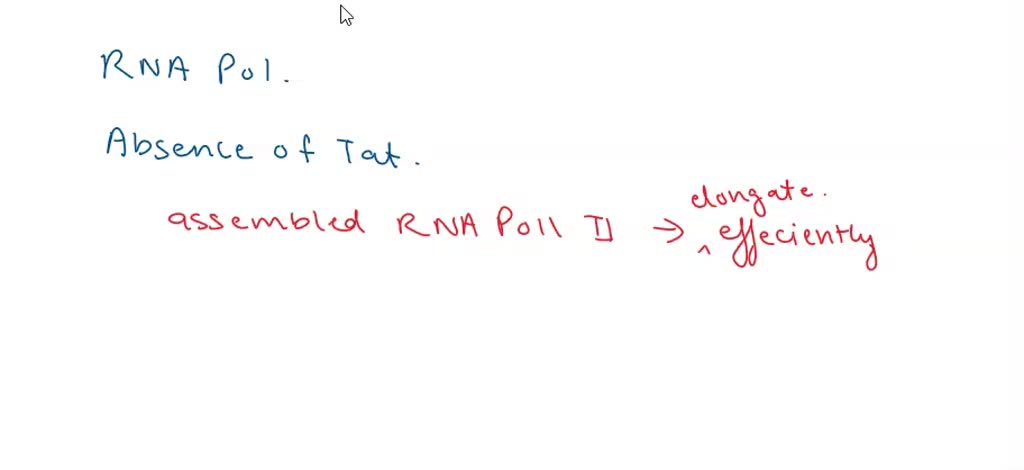 RNA Pol.
Absence of Tat.
elongate.
assembled RNA Poll II → ^ effeciently